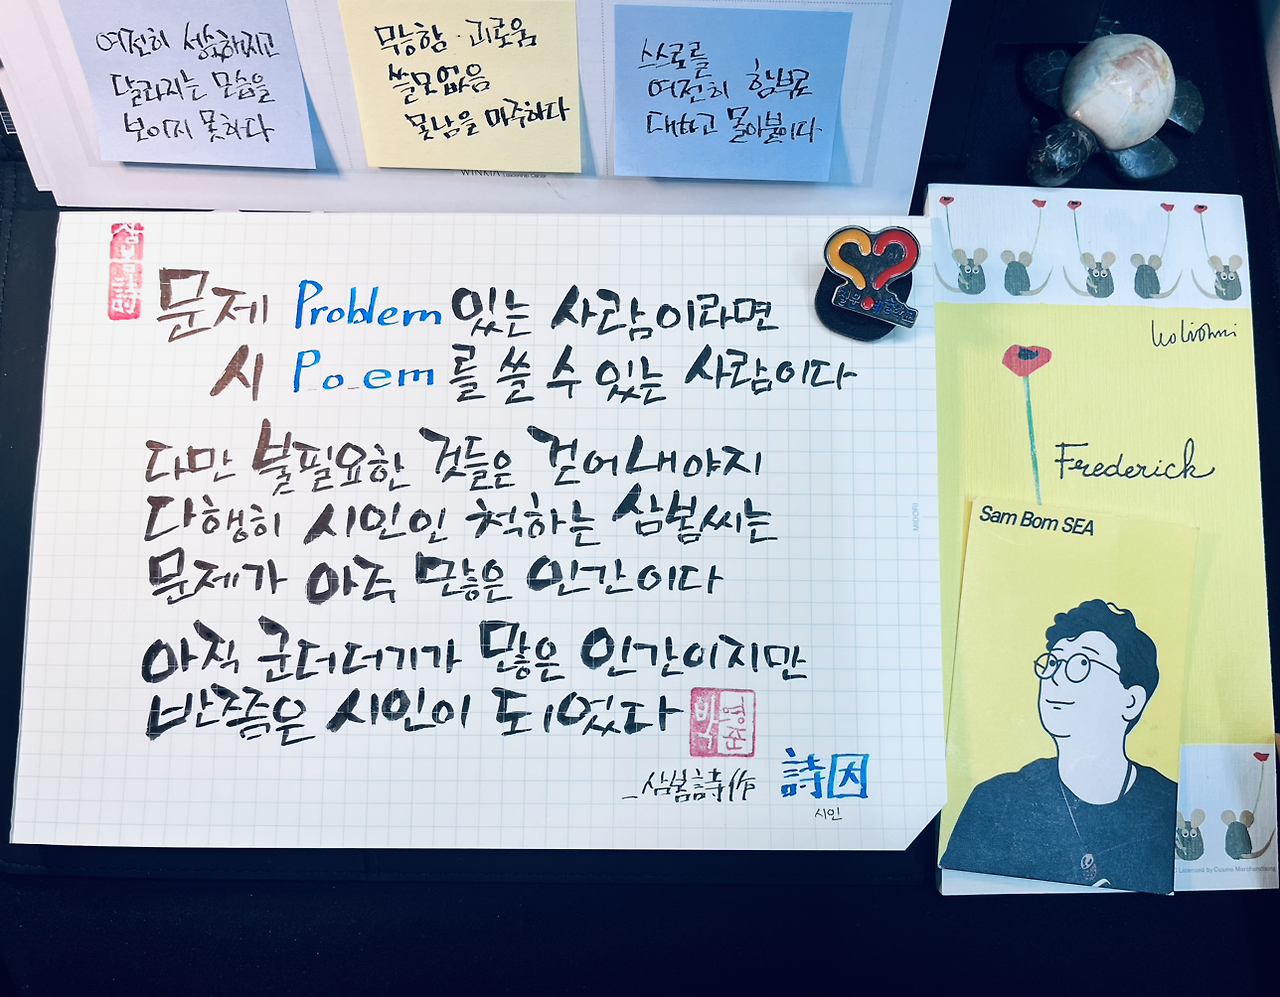 여전히 성숙해지고
달라지는 모습을
보이지 못하다
무능함·괴로움
쓸모없음
못남을 마주하다
스스로를
여전히 함부로
대하고 몰아붙이다
WINKIA Leadership Center
문제 Problem 있는 사람이라면
시 P_o_em를 쓸 수 있는 사람이다
다만 불필요한 것들은 걷어내야지
다행히 시인인 척하는 삼봄씨는
문제가 아주 많은 인간이다
아직 군더더기가 많은 인간이지만
반쯤은 시인이 되었다
_삼봄詩作
詩因
시인
MIDORI
leo lionni
Frederick
Sam Bom SEA
Licensed by Cosmo Merchandising